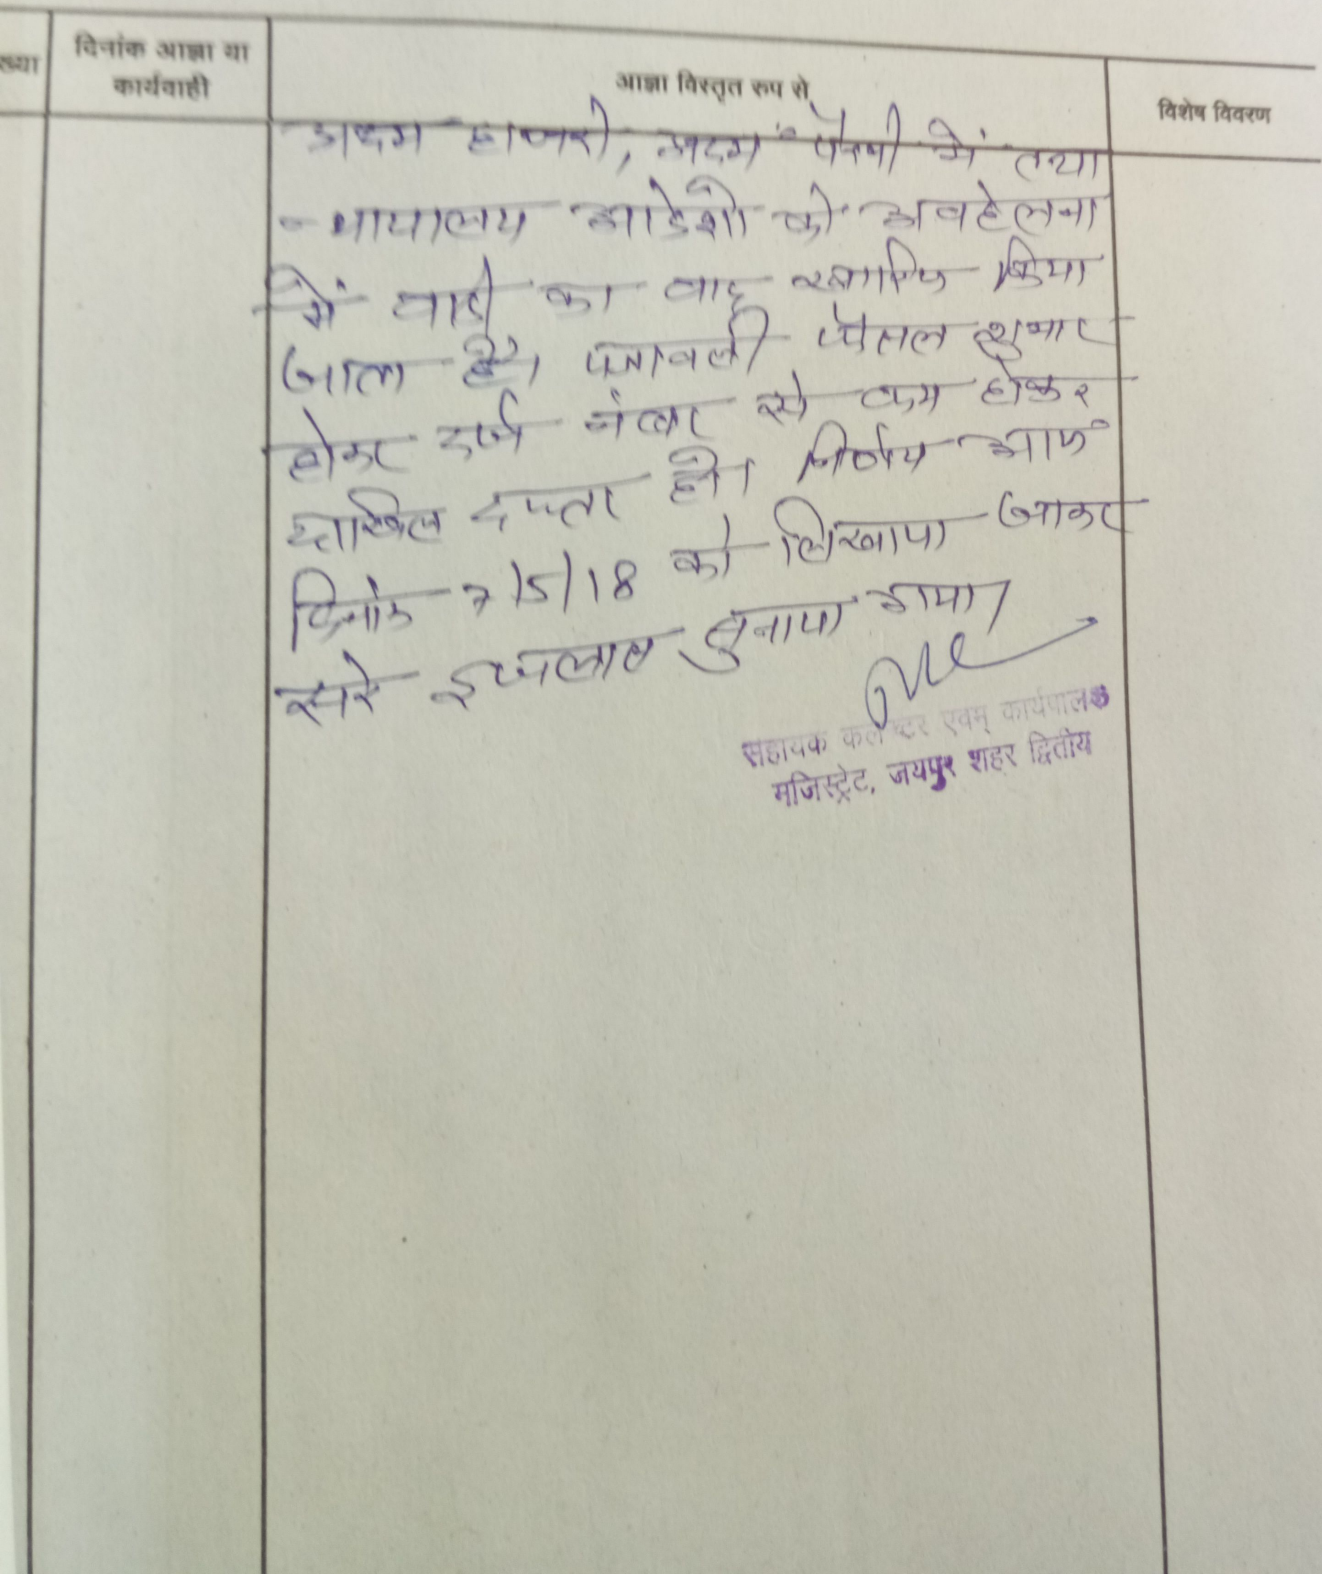 ख्या
दिनांक आज्ञा या
कार्यवाही
आज्ञा विस्तृत रुप से
विशेष विवरण
अदम हाजरी, अदम पैरवी में तथा
न्यायालय आदेशो की अवहेलना
में वादी का वाद खारिज किया
जाता है। पत्रावली फैसल शुमार
होकर दर्ज नंबर से कम होकर
दाखिल दफ्तर हो। निर्णय आज
दिनांक 7/5/18 को लिखाया जाकर
सरे इजलास सुनाया गया।
सहायक कलेक्टर एवम् कार्यपालक
मजिस्ट्रेट, जयपुर शहर द्वितीय